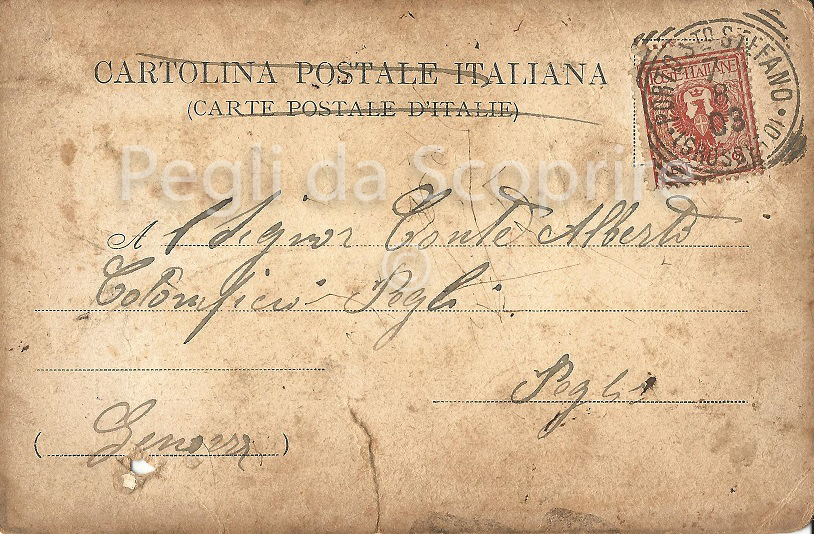 CARTOLINA POSTALE ITALIANA
(CARTE POSTALE D'ITALIE)
BORGO S.TO STEFANO
7
8
03
POSTE ITALIANE
Pegli da Scoprire
©
Al Signor Conte Alberto
Cotonificio Pegli
Pegli
(Genova)